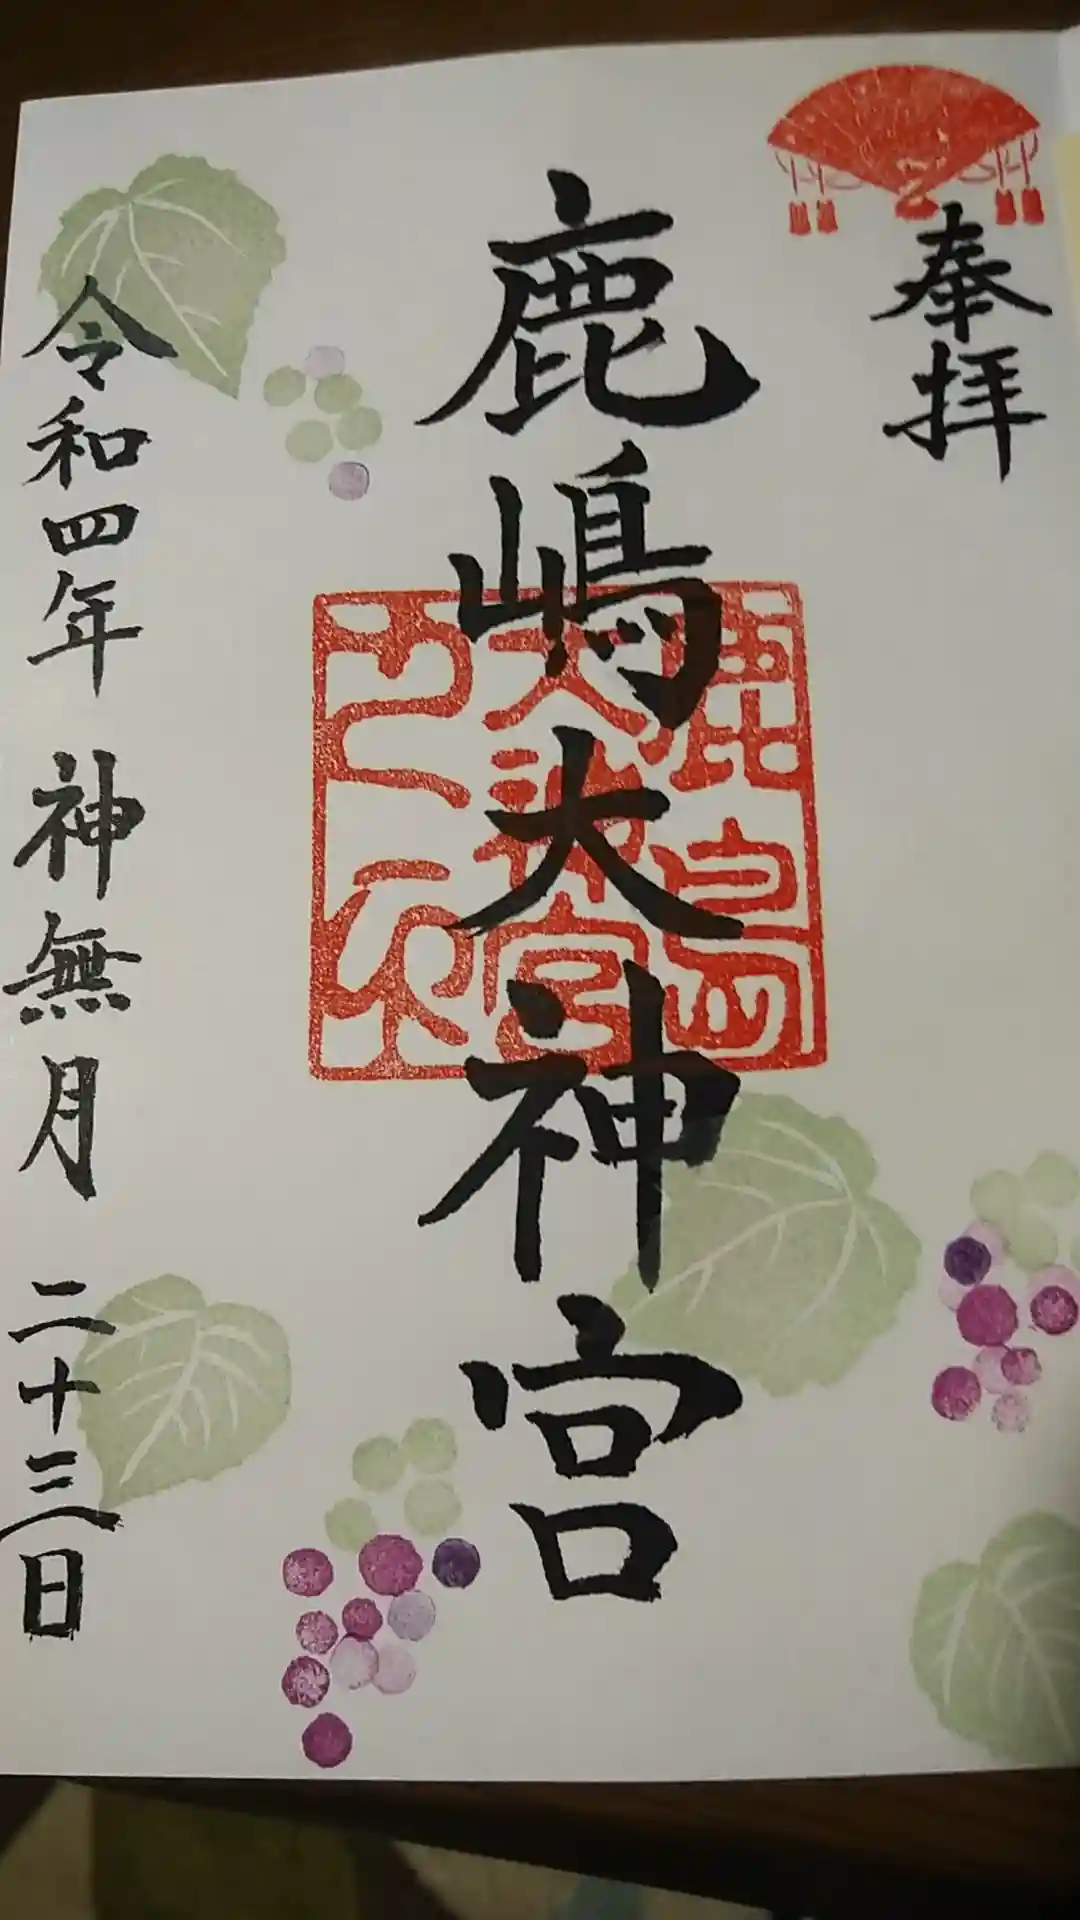 奉拝
鹿嶋大神宮
鹿島
大神宮
之印
令和四年 神無月 二十三日